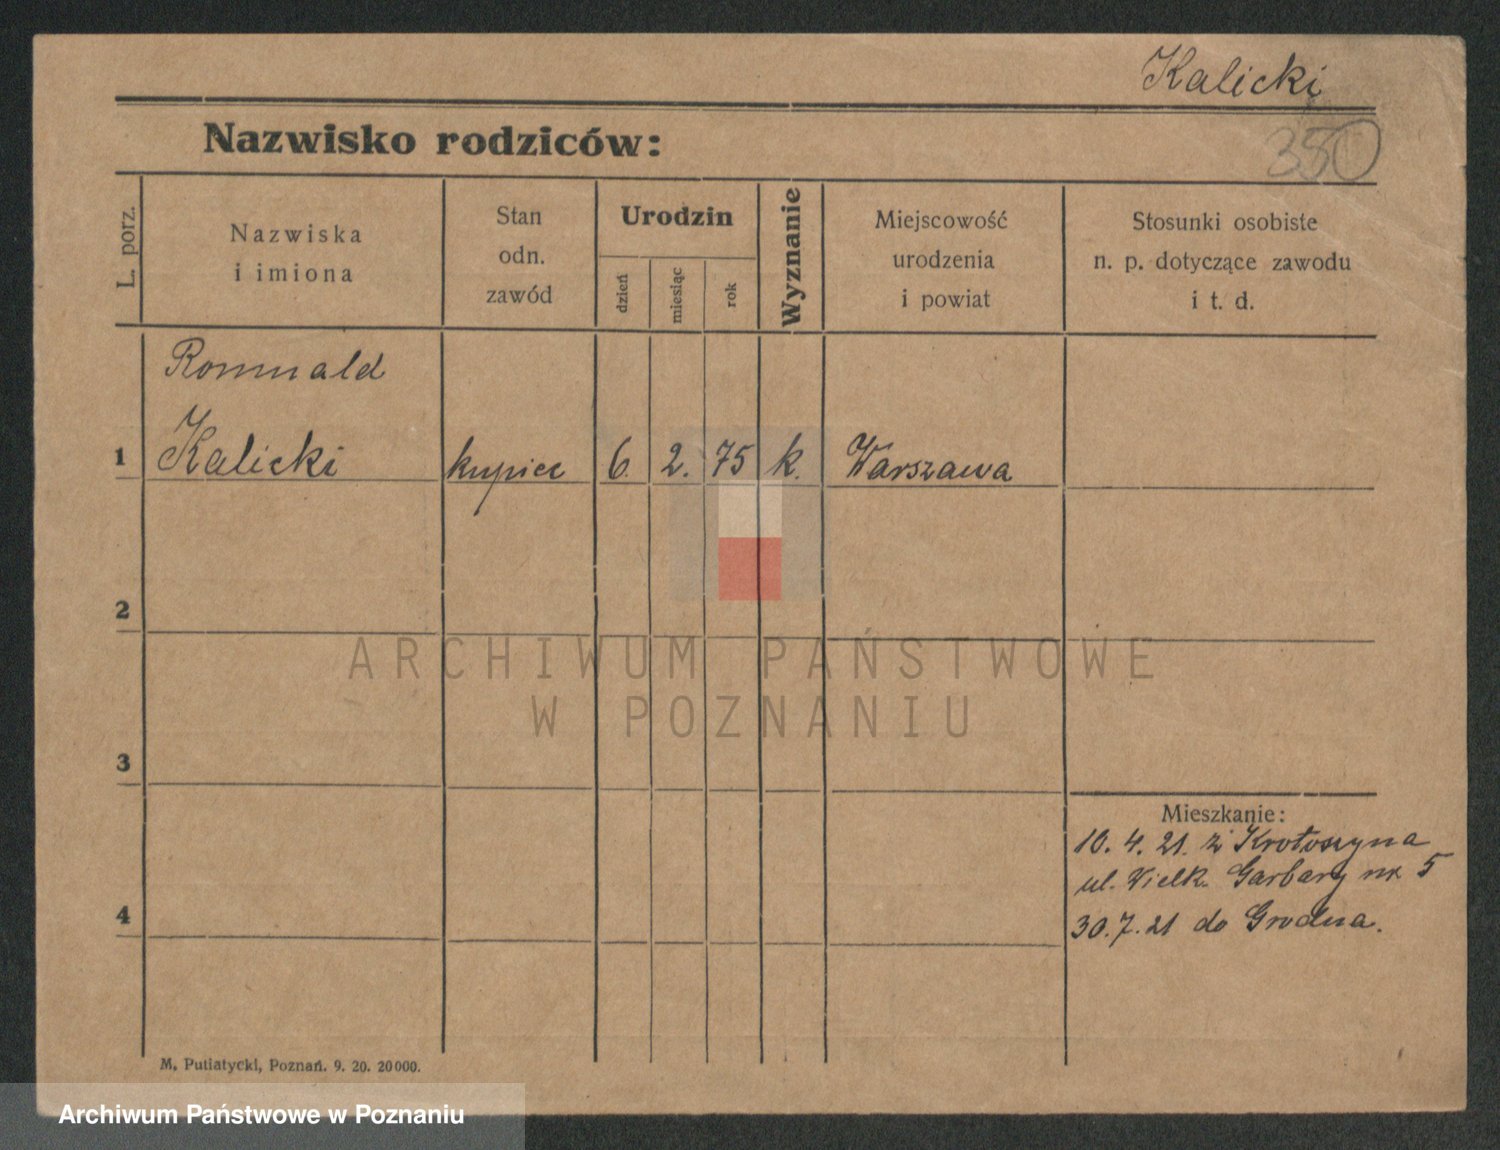 Kalicki
350
Nazwisko rodziców:
L. porz.
Nazwiska
i imiona
Stan
odn.
zawód
Urodzin
dzień
miesiąc
rok
Wyznanie
Miejscowość
urodzenia
i powiat
Stosunki osobiste
n. p. dotyczące zawodu
i t. d.
Romuald
1 Kalicki kupiec 6. 2. 75 k. Warszawa
2
ARCHIWUM PAŃSTWOWE
W POZNANIU
3
Mieszkanie:
10. 4. 21. z Krotoszyna
ul. Wielk. Garbary nr 5
4
30. 7. 21 do Grodna.
M. Putiatycki, Poznań. 9. 20. 20000.
Archiwum Państwowe w Poznaniu